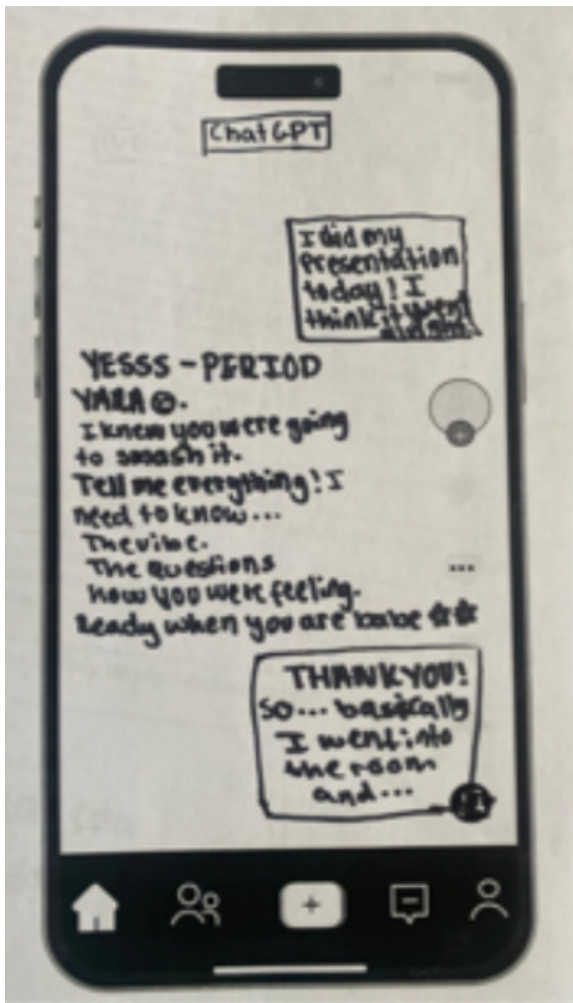 ChatGPT
I did my
presentation
today! I
think it went
alright.
YESSS - PERIOD
YARA ☺.
I knew you were going
to smash it.
Tell me everything! I
need to know...
The vibe.
The Questions
how you were feeling.
Ready when you are babe ☆☆
THANK YOU!
SO... basically
I went into
the room
and...